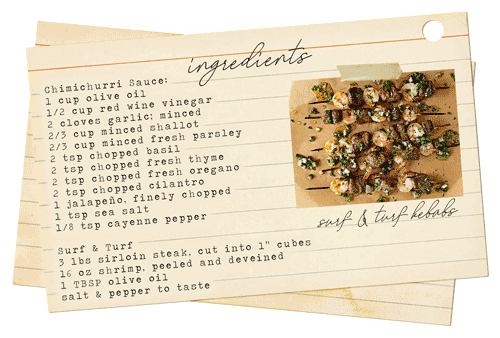 ingredients
Chimichurri Sauce:
1 cup olive oil
1/2 cup red wine vinegar
2 cloves garlic; minced
2/3 cup minced shallot
2/3 cup minced fresh parsley
2 tsp chopped basil
2 tsp chopped fresh thyme
2 tsp chopped fresh oregano
2 tsp chopped cilantro
1 jalapeño, finely chopped
1 tsp sea salt
1/8 tsp cayenne pepper
surf & turf kebabs
Surf & Turf
3 lbs sirloin steak, cut into 1" cubes
16 oz shrimp, peeled and deveined
1 TBSP olive oil
salt & pepper to taste